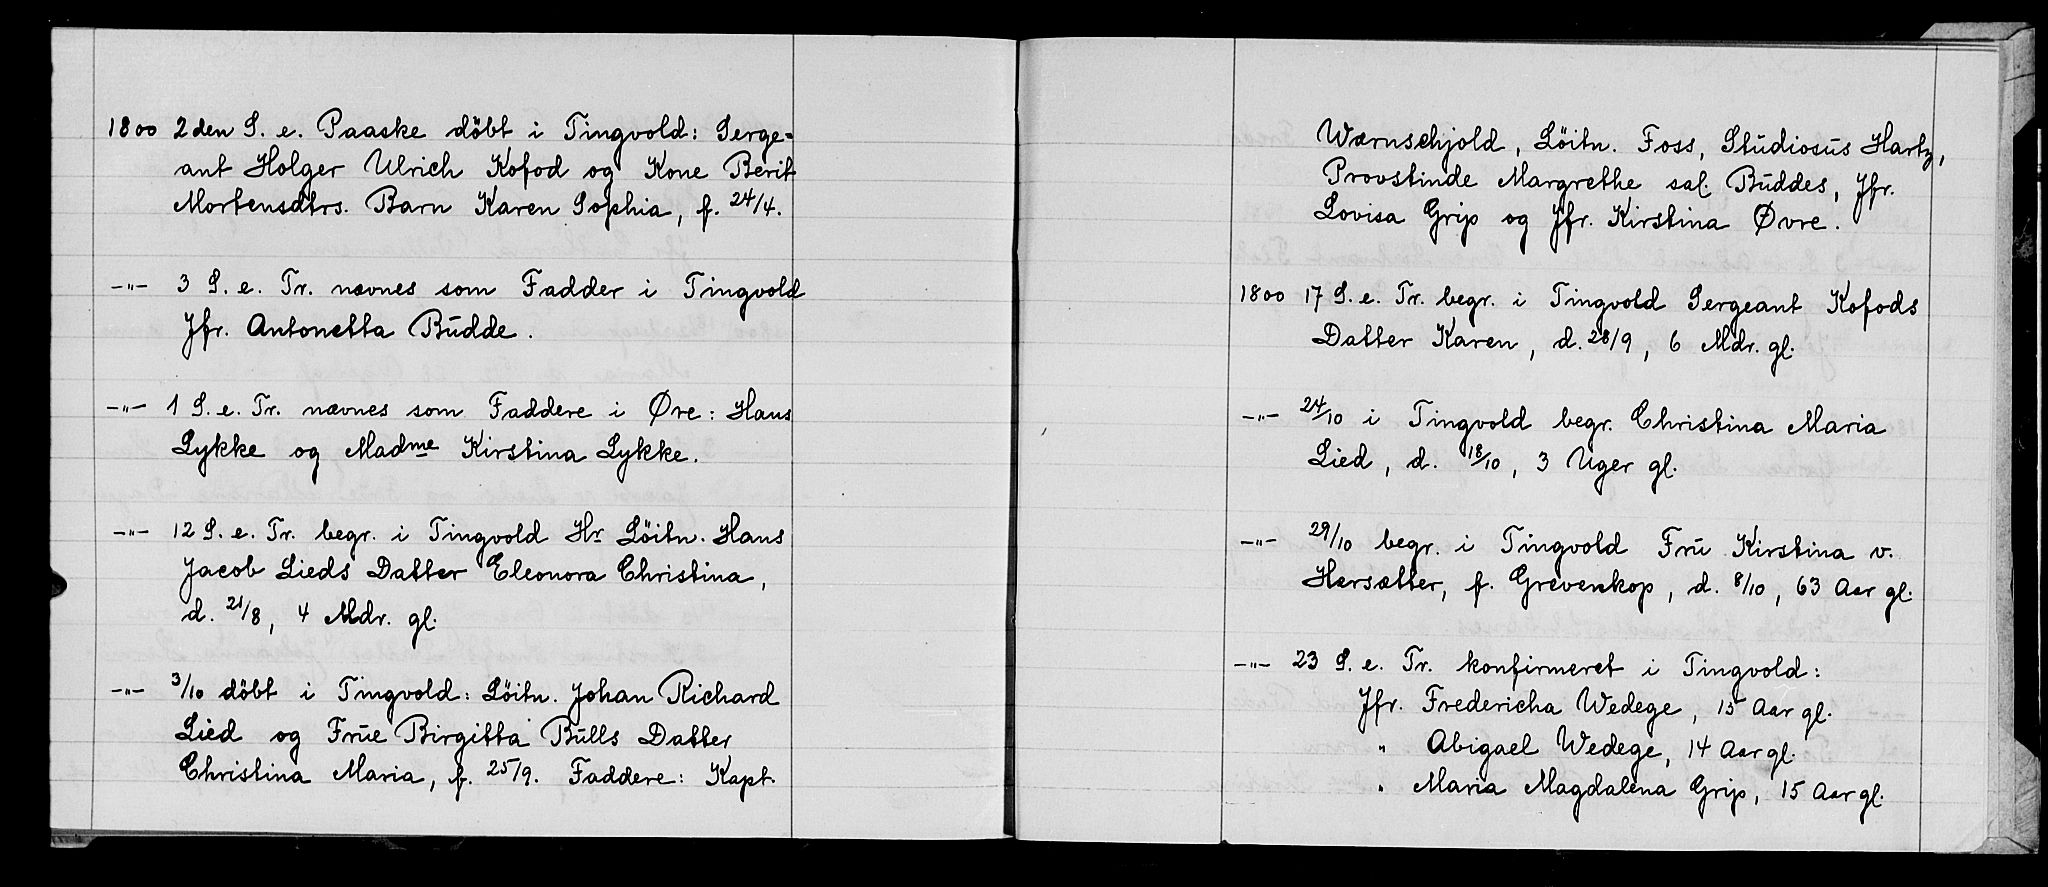 1800 2den S. e. Paaske döbt i Tingvold: Serge=
ant Holger Ulrich Kofod og Kone Berit
Mortensdtrs. Barn Karen Sophia, f. 24/4.
-"- 3 S. e. Tr. nævnes som Fadder i Tingvold
Jfr. Antonetta Budde.
-"- 1 S. e. Tr. nævnes som Faddere i Øre: Hans
Lykke og Madme Kirstina Lykke.
-"- 12 S. e. Tr. begr. i Tingvold Hr Löitn. Hans
Jacob Lieds Datter Eleonora Christina,
d. 21/8, 4 Mdr. gl.
-"- 3/10 döbt i Tingvold: Löitn. Johan Richard
Lied og Frue Birgitta Bulls Datter
Christina Maria, f. 25/9. Faddere: Kapt.
Wærnschjold, Löitn. Foss, Studiosus Hartz,
Provstinde Margrethe sal. Buddes, Jfr.
Lovisa Grip og Jfr. Kirstina Øvre.
1800 17 S. e. Tr. begr. i Tingvold Sergeant Kofods
Datter Karen, d. 28/9, 6 Mdr. gl.
-"- 24/10 i Tingvold begr. Christina Maria
Lied, d. 18/10, 3 Uger gl.
-"- 29/10 begr. i Tingvold Fru Kirstina v.
Hersætter, f. Grevenkop, d. 8/10, 63 Aar gl.
-"- 23 S. e. Tr. konfirmeret i Tingvold:
Jfr. Fredericha Wedege, 15 Aar gl.
" Abigael Wedege, 14 Aar gl.
" Maria Magdalena Grip, 15 Aar gl.